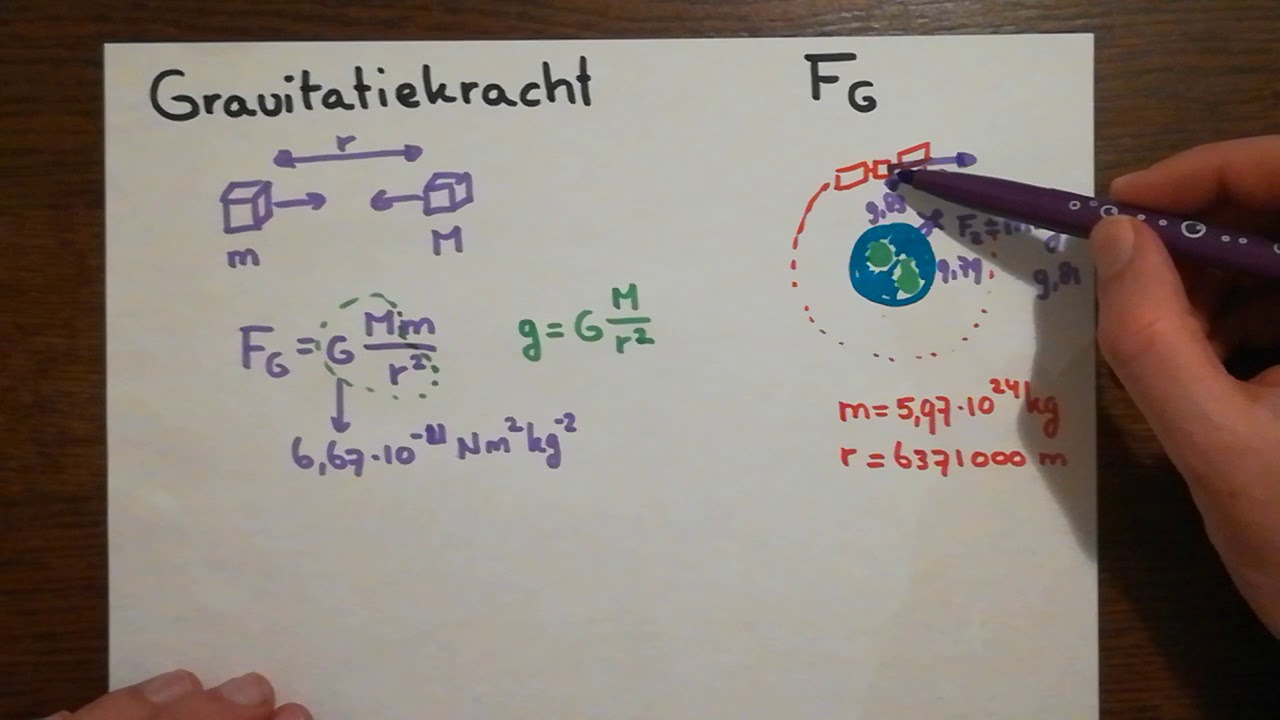 Gravitatiekracht
F_G
r
m
M
F_G = G Mm/r²
g = G M/r²
6,67·10⁻¹¹ Nm²kg⁻²
9,83
9,79
9,81
m = 5,97·10²⁴ kg
r = 6371000 m